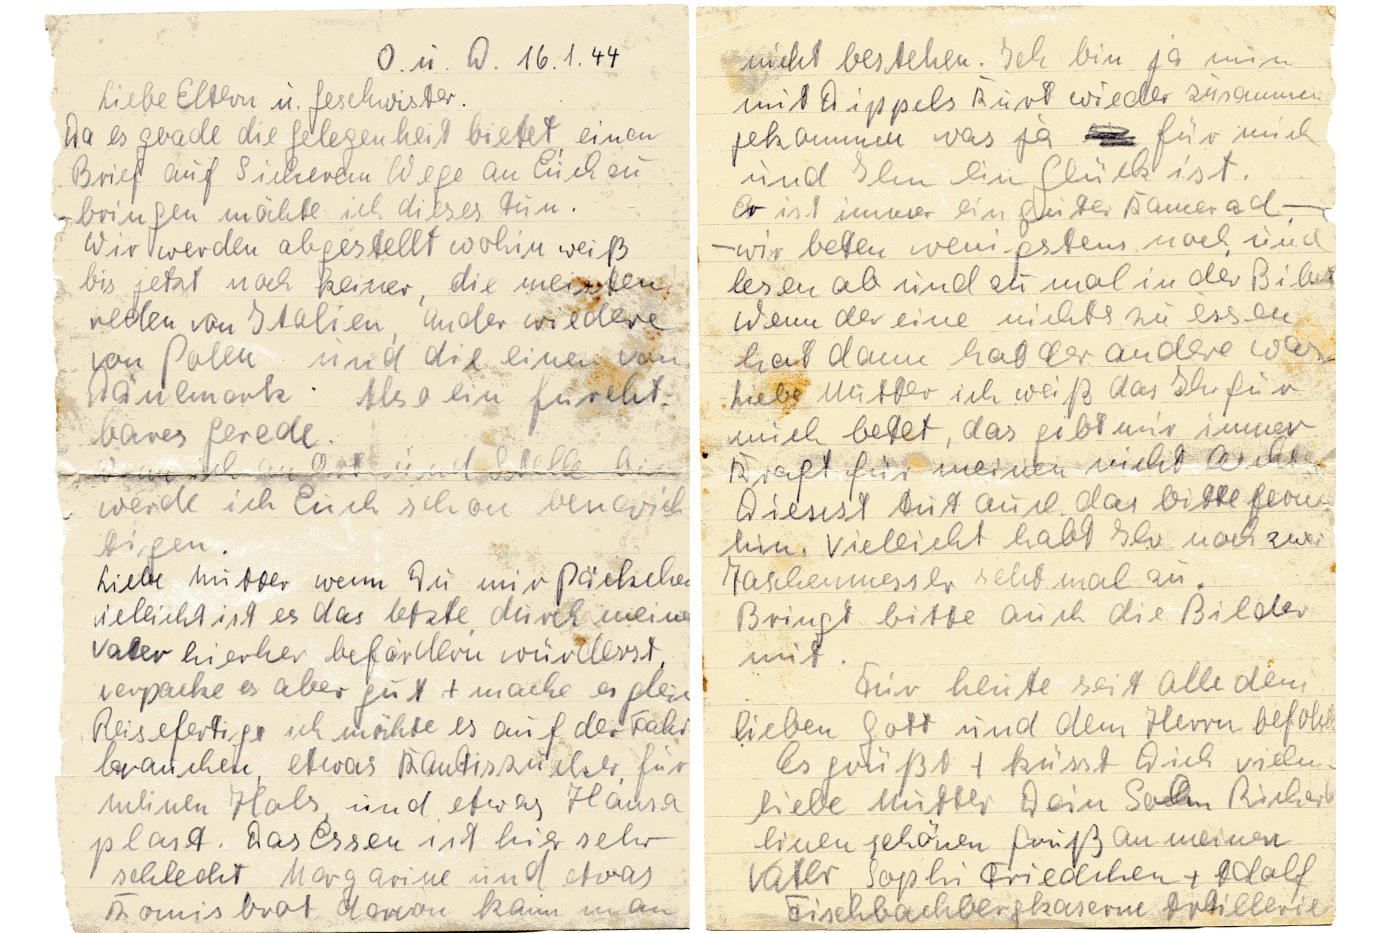 O. u. D. 16.1.44
Liebe Eltern u. geschwister.
Da es grade die gelegenheit bietet, einen
Brief auf Sicherem Wege an Euch zu
bringen möchte ich dieses tun.
Wir werden abgestellt wohin weiß
bis jetzt noch keiner, die meissten
reden von Italien, ander wiedere
von Polen und die einen von
Dänemark. Also ein furcht-
bares gerede.
wenn ich an Ort und Stelle bin
werde ich Euch schon benarich
tigen.
Liebe Mutter wenn Du mir Päckchen
vieleicht ist es das letzte durch meinen
Vater hierher befördern würdesst,
verpacke es aber gut + mache es gleich
Reisefertig, ich möchte es auf der Fahrt
brauchen, etwas Kandiszucker, für
meinen Hals, und etwas Hansa
plast. Das Essen ist hier sehr
schlecht, Margarine und etwas
Komisbrot davon kann man
nicht bestehen. Ich bin ja nun
mit Dippels Kurt wieder zusammen
gekommen was ja für mich
und Ihn ein Glück ist.
Er ist immer ein guter Kamerad,—
—wir beten wenigstens noch und
lesen ab und zu mal in der Bibel
Wenn der eine nichts zu essen
hat dann hat der andere was.
Liebe Mutter ich weiß das Ihr für
mich betet, das gibt mir immer
Kraft für meinen nicht leichten
Dienst tut auch das bitte fernr
hin. Vielleicht habt Ihr noch zwei
Taschenmesser seht mal zu.
Bringt bitte auch die Bilder
mit.
Für heute seit alle dem
lieben Gott und dem Herrn befohlen
Es grüßt + küsst Dich vielm.
liebe Mutter Dein Sohn Richard
einen schönen Gruß an meinen
Vater, Sophi Friedchen + Adolf
Fischbachbergkaserne Artillerie